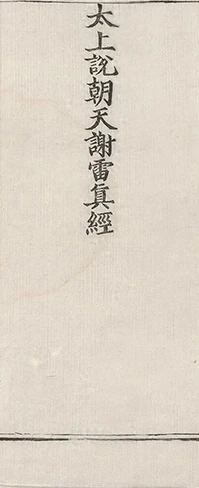 太上說朝天謝雷眞經